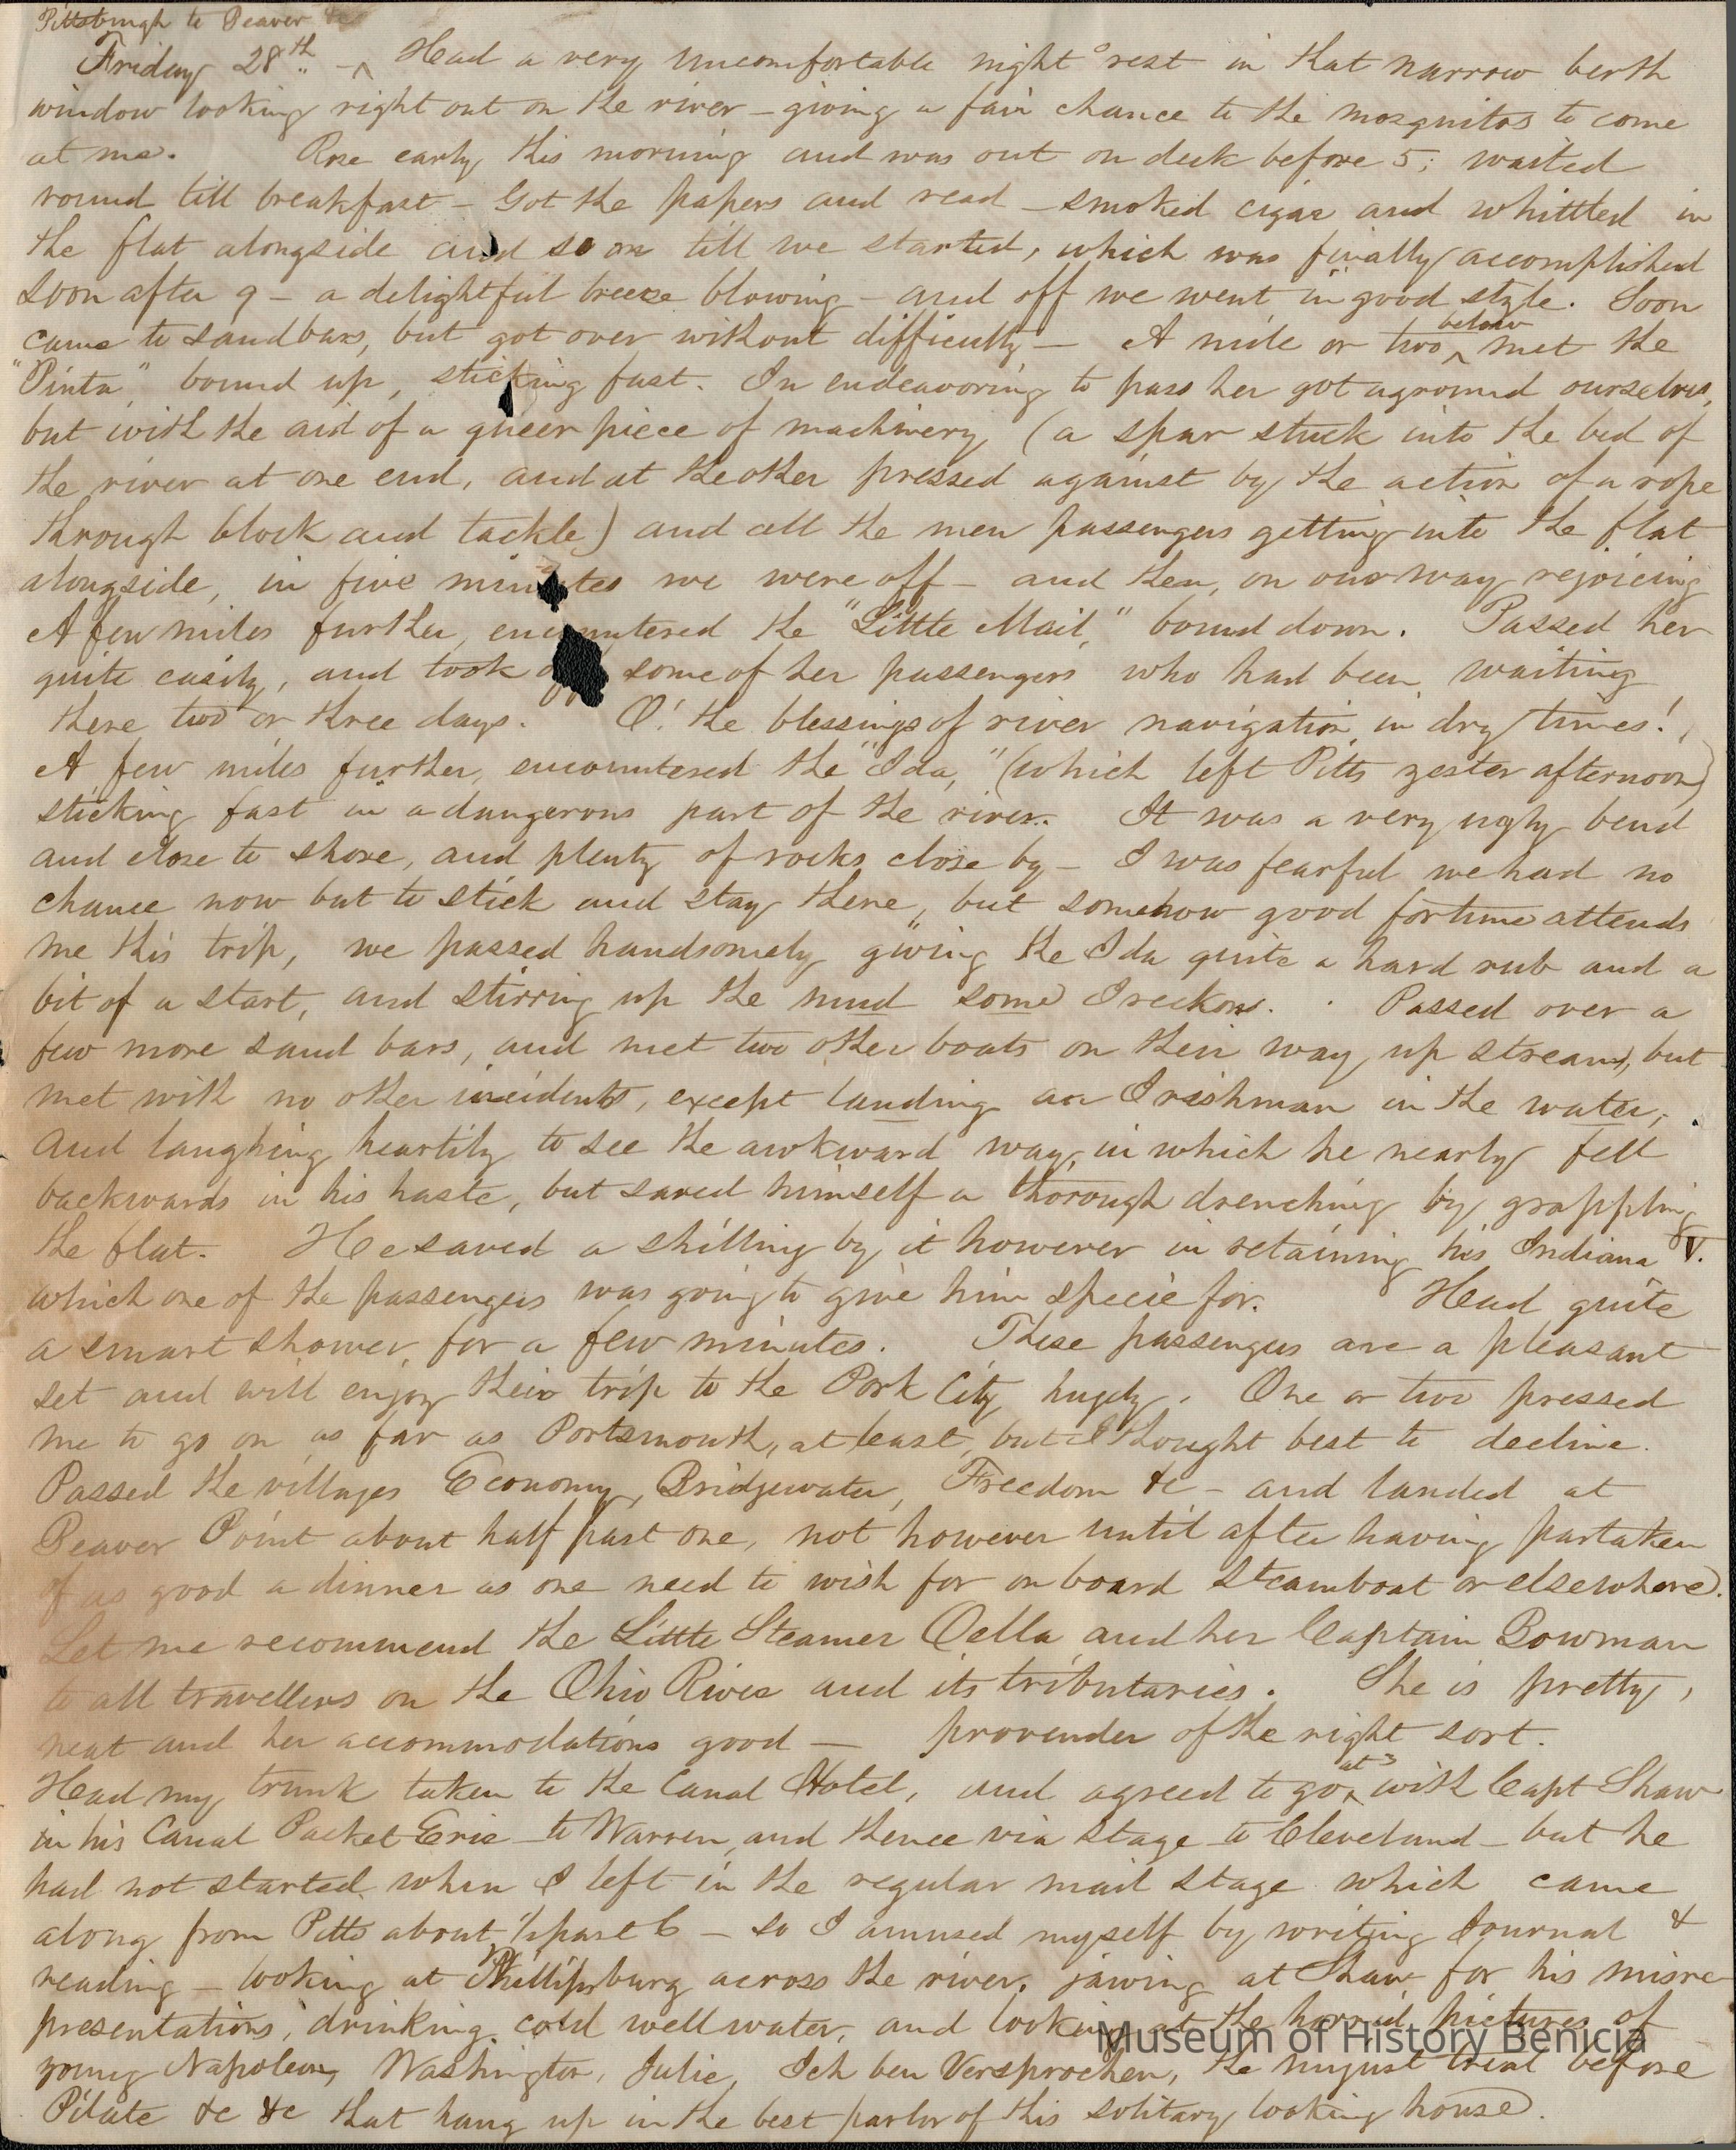 Pittsburgh to Beaver &c
Friday 28th. - ^ Had a very uncomfortable night's rest in that narrow berth
window looking right out on the river - giving a fair chance to the mosquitos to come
at me. Rose early this morning and was out on deck before 5; waited
round till breakfast - Got the papers and read - smoked cigar and whittled in
the flat alongside and so on till we started, which was finally accomplished
soon after 9 - a delightful breeze blowing - and off we went in good style. Soon
came to sandbars, but got over without difficulty - A mile or two ^ below met the
"Pinta" bound up, sticking fast. In endeavoring to pass her got aground ourselves,
but with the aid of a queer piece of machinery (a spar stuck into the bed of
the river at one end, and at the other pressed against by the action of a rope
through block and tackle) and all the men passengers getting into the flat
alongside, in five minutes we were off - and then, on our way rejoicing
A few miles further, encountered the "Little Mail," bound down. Passed her
quite easily, and took off some of her passengers who had been waiting
there two or three days. O! the blessings of river navigation in dry times!
A few miles further, encountered the "Ida," (which left Pitts yester afternoon)
sticking fast in a dangerous part of the river. It was a very ugly bend
and close to shore, and plenty of rocks close by - I was fearful we had no
chance now but to stick and stay there, but somehow good fortune attends
me this trip, we passed handsomely giving the Ida quite a hard rub and a
bit of a start, and stirring up the mud some I reckon. Passed over a
few more sand bars, and met two other boats on their way up stream, but
met with no other incidents, except landing an Irishman in the water,
and laughing heartily to see the awkward way in which he nearly fell
backwards in his haste, but saved himself a thorough drenching by grappling
the flat. He saved a shilling by it however in retaining his Indiana V.
which one of the passengers was going to give him specie for. Had quite
a smart shower for a few minutes. These passengers are a pleasant
set and will enjoy their trip to the Pork City hugely. One or two pressed
me to go on as far as Portsmouth, at least, but I thought best to decline.
Passed the villages Economy, Bridgewater, Freedom &c - and landed at
Beaver Point about half past one, not however until after having partaken
of as good a dinner as one need to wish for on board steamboat or elsewhere.
Let me recommend the Little Steamer Oella and her Captain Bowman
to all travellers on the Ohio River and its tributaries. She is pretty,
neat and her accommodations good - provender of the right sort.
Had my trunk taken to the Canal Hotel, and agreed to go ^ at 3 with Capt Shaw
in his Canal Packet Erie to Warren, and thence via stage to Cleveland - but he
had not started when I left in the regular mail stage which came
along from Pitts about 1/2 past 6 - so I amused myself by writing Journal &
reading - looking at Phillipsburg across the river, jawing at Shaw for his misre
presentations, drinking cold well water, and looking at the horrid pictures of
young Napoleon, Washington, Julie, Ich ben Versprochen, the august trial before
Pilate &c &c that hang up in the best parlor of this solitary looking house.
Museum of History Benicia